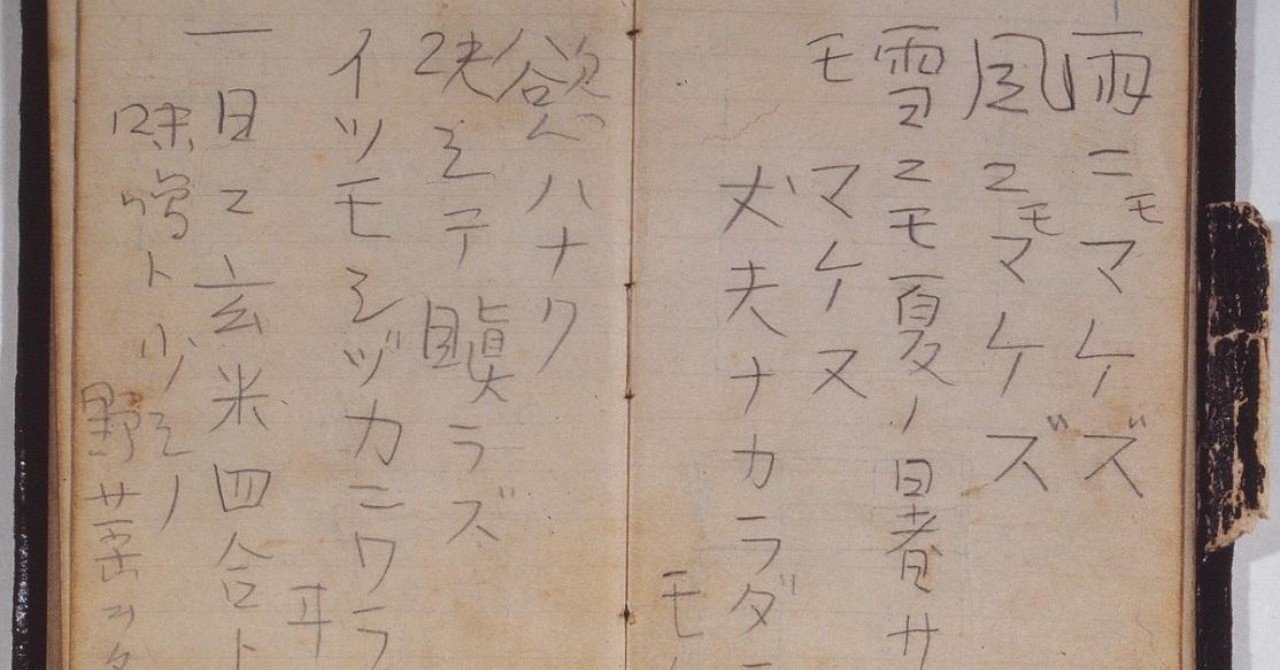 雨ニモマケズ
風ニモマケズ
雪ニモ夏ノ暑サ
モ マケヌ
丈夫ナカラダ
モ
慾ハナク
決シテ瞋ラズ
イツモシヅカニワラ
ヰ
一日ニ玄米四合ト
味噌ト少シノ
野菜ヲタ